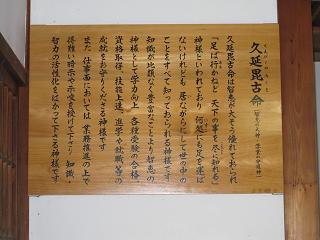 久延毘古命
（智恵の大神・学業の守護神）
久延毘古命は智恵が大そう優れておられ
「足は行かねど 天下の事を尽に知れる」
神様といわれており 何処にも足を運ば
ないけれども、居ながらにして世の中の
ことをすべて知っておられる神様です
知識が比類なく豊富なことより智恵の
神様として学力向上 各種受験の合格、
資格取得、技能上達、進学や就職等の
成就をお守りくださる神様です
また 仕事面においては 業務推進の上で
得難い暗示や示唆を授けて下さり 知識・
智力の活性化をはかって下さる神様です